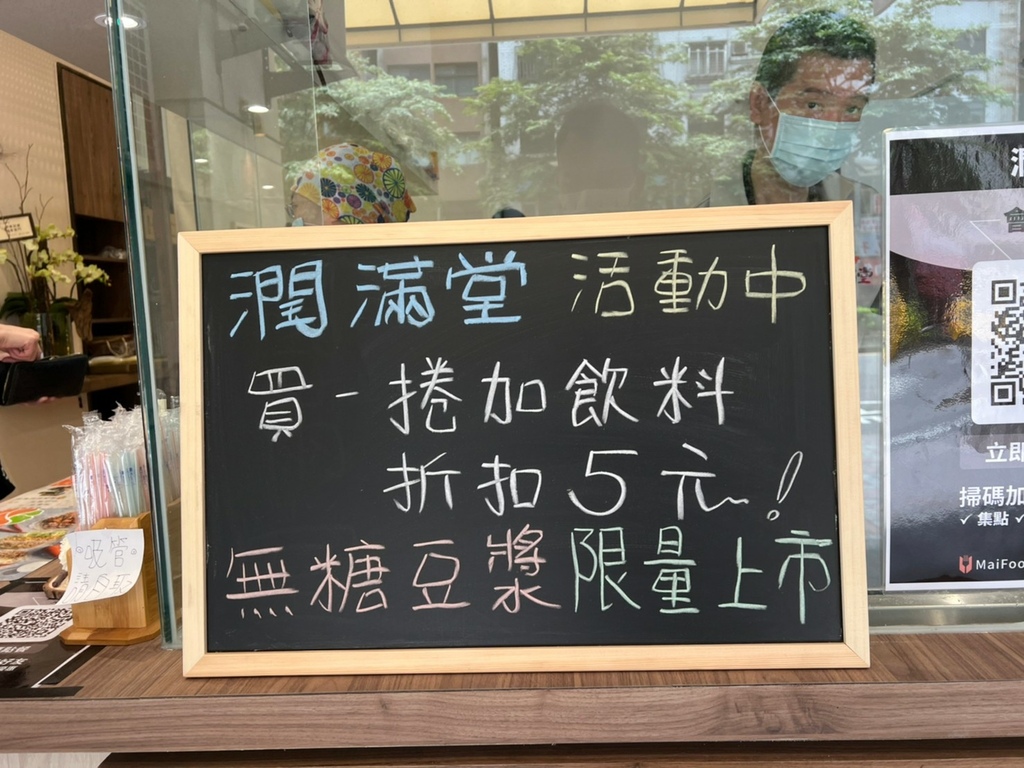 潤滿堂 活動中
買一捲加飲料
折扣5元!
無糖豆漿限量上市
吸管
請自取
立即
掃碼加
✓ 集點 ✓
MaiFoo